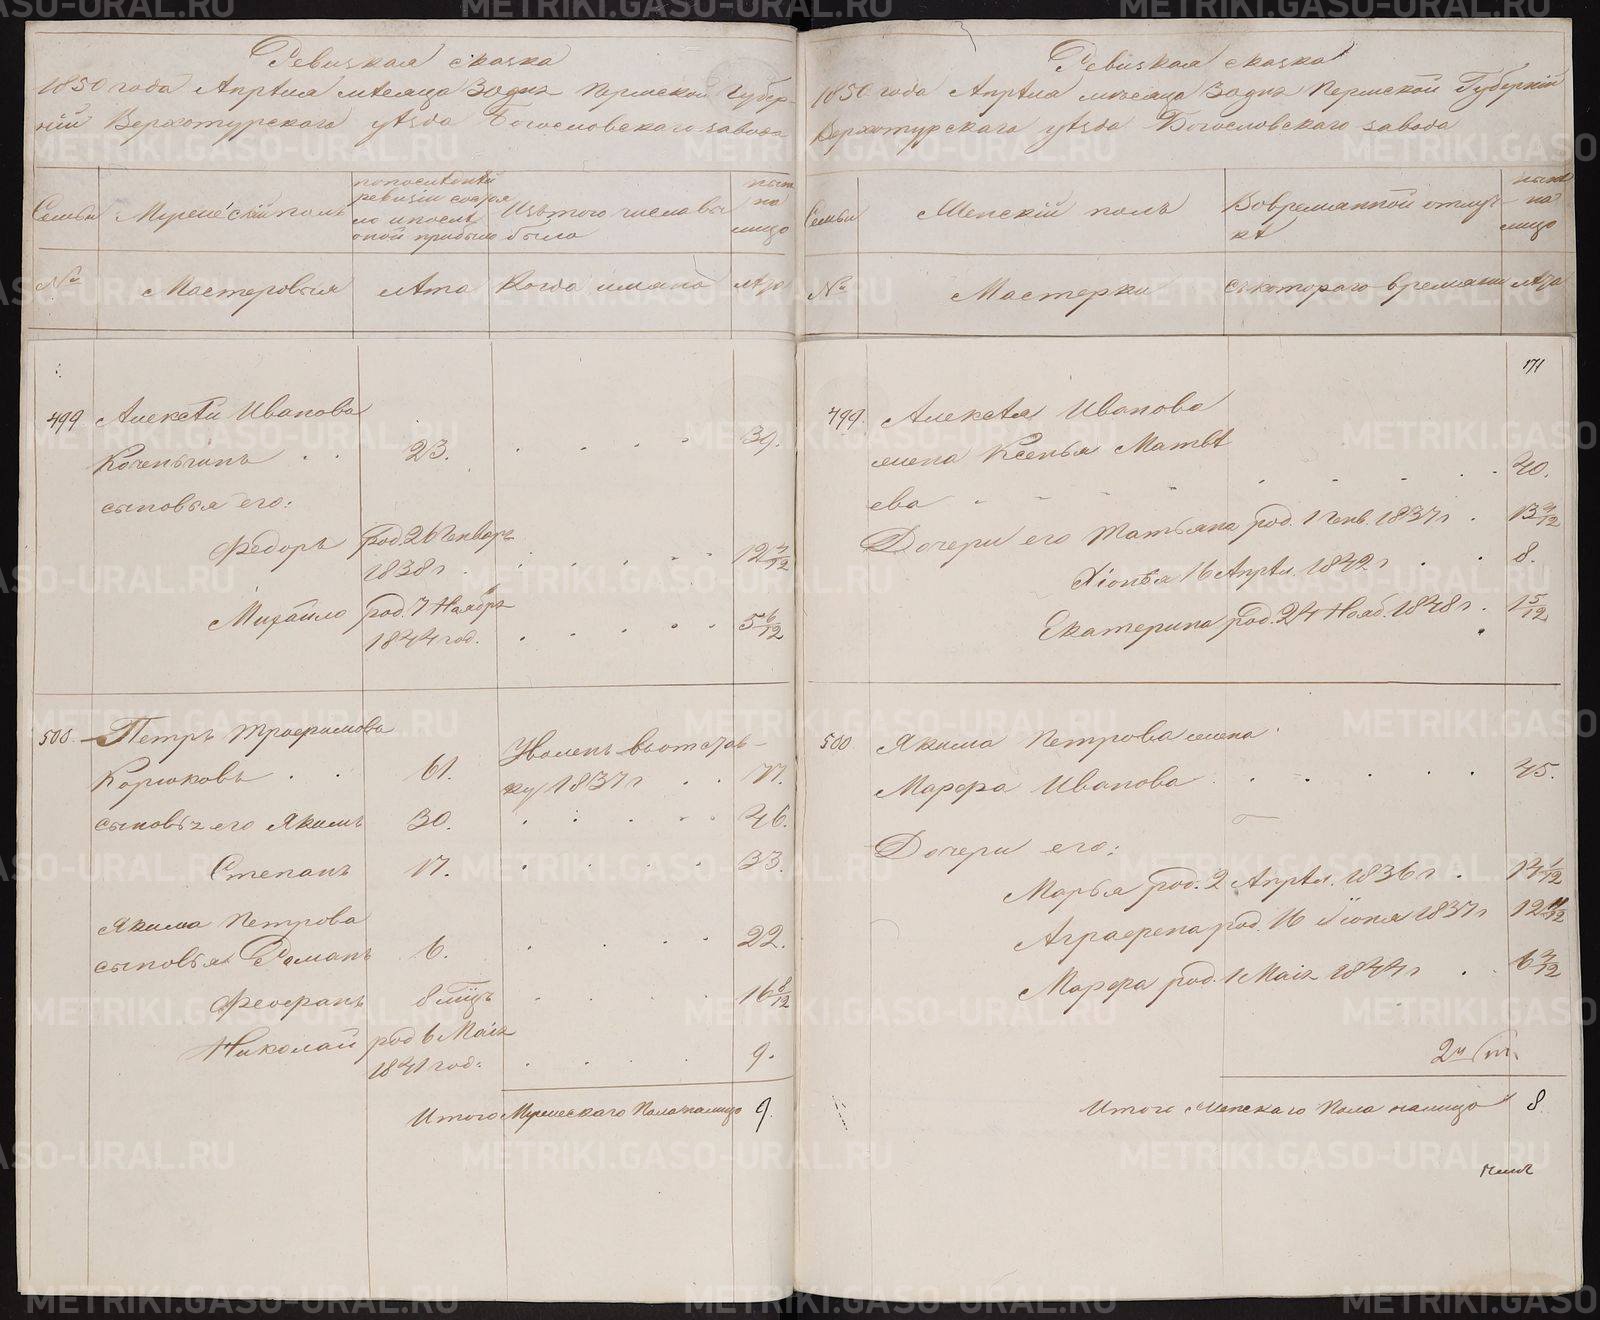 Ревизкая сказка
1850 года Апрѣля мѣсяца 30 дня Пермской Губер-
ніи Верхотурскаго уѣзда Богословскаго завода
Семьи
Мужескій полъ
по послѣдней
ревизіи состоя
ло и послѣ
оной прибыло
Изъ того числа вы
было
ныне
на
лицо
№
Мастеровыя
лѣта
Когда имяно
лѣта
499.
Алексѣй Иванова
23.
39.
сыновья его:
Федоръ
род. 26 Генваря
1838 г.
12 3/12
Михайло
род. 7 Ноября
1844 год.
5 6/12
500.
Петръ Трафимова
Корюковъ
61.
Уволенъ в отстав-
ку 1837 г
77.
сыновья его Якимъ
30.
46.
Степанъ
17.
33.
Якима Петрова
сыновья Романъ
6.
22.
Феофанъ
8 мѣц
16 8/12
Николай
род 6 Мая
1841 год:
9.
Итого Мужескаго Пола налицо 9.
Ревизкая сказка
1850 года Апрѣля мѣсяца 30 дня Пермской Губерніи
Верхотурскаго уѣзда Богословскаго завода
Семьи
Женскій полъ
Вовремянной отлуч-
кѣ
ныне
на
лицо
№
Мастерки
съ котораго времяни
лѣта
171
499.
Алексѣя Иванова
жена Ксенья Матвѣ
ева
40.
Дочери его Татьяна род. 1 Генв. 1837 г.
13 3/12
16 Апрѣл. 1842 г
8.
Екатерина род. 24 Нояб. 1848 г.
1 5/12
500
Якима Петрова жена
Марфа Иванова
45.
Дочери его:
Марья род. 2 Апрѣл. 1836 г.
14 1/12
Аграфена род. 16 Іюня 1837 г
12
Марфа род. 1 Мая 1844 г
6
Итого Женскаго Пола налицо 8.
METRIKI.GASO-URAL.RU